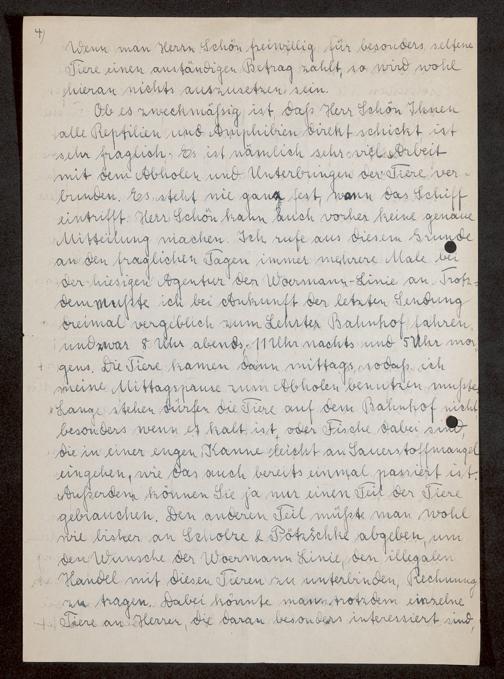 4)
Wenn man Herrn Schön freiwillig für besonders seltene
Tiere einen anständigen Betrag zahlt, so wird wohl
hieran nichts auszusetzen sein.
Ob es zweckmässig ist, daß Herr Schön Ihnen
alle Reptilien und Amphibien direkt schickt ist
sehr fraglich. Es ist nämlich sehr viel Arbeit
mit dem Abholen und Unterbringen der Tiere ver-
bunden. Es steht nie ganz fest, wann das Schiff
eintrifft. Herr Schön kann auch vorher keine genaue
Mitteilung machen. Ich rufe aus diesem Grunde
an den fraglichen Tagen immer mehrere Male bei
der hiesigen Agentur der Woermann-Linie an. Trotz-
dem mußte ich bei Ankunft der letzten Sendung
dreimal vergeblich zum Lehrter Bahnhof fahren,
und zwar 8 Uhr abends, 11 Uhr nachts und 5 Uhr mor-
gens. Die Tiere kamen dann mittags, sodaß ich
meine Mittagspause zum Abholen benutzen mußte.
Lange stehen dürfen die Tiere auf dem Bahnhof nicht
besonders wenn es kalt ist, oder Fische dabei sind,
die in einer engen Kanne leicht an Sauerstoffmangel
eingehen, wie das auch bereits einmal passiert ist.
Außerdem können Sie ja nur einen Teil der Tiere
gebrauchen. Den anderen Teil müßte man wohl
wie bisher an Scholze & Pötzschke abgeben, um
dem Wunsche der Woermann Linie, den illegalen
Handel mit diesen Tieren zu unterbinden, Rechnung
zu tragen. Dabei könnte man trotzdem einzelne
Tiere an Herren, die daran besonders interessiert sind,